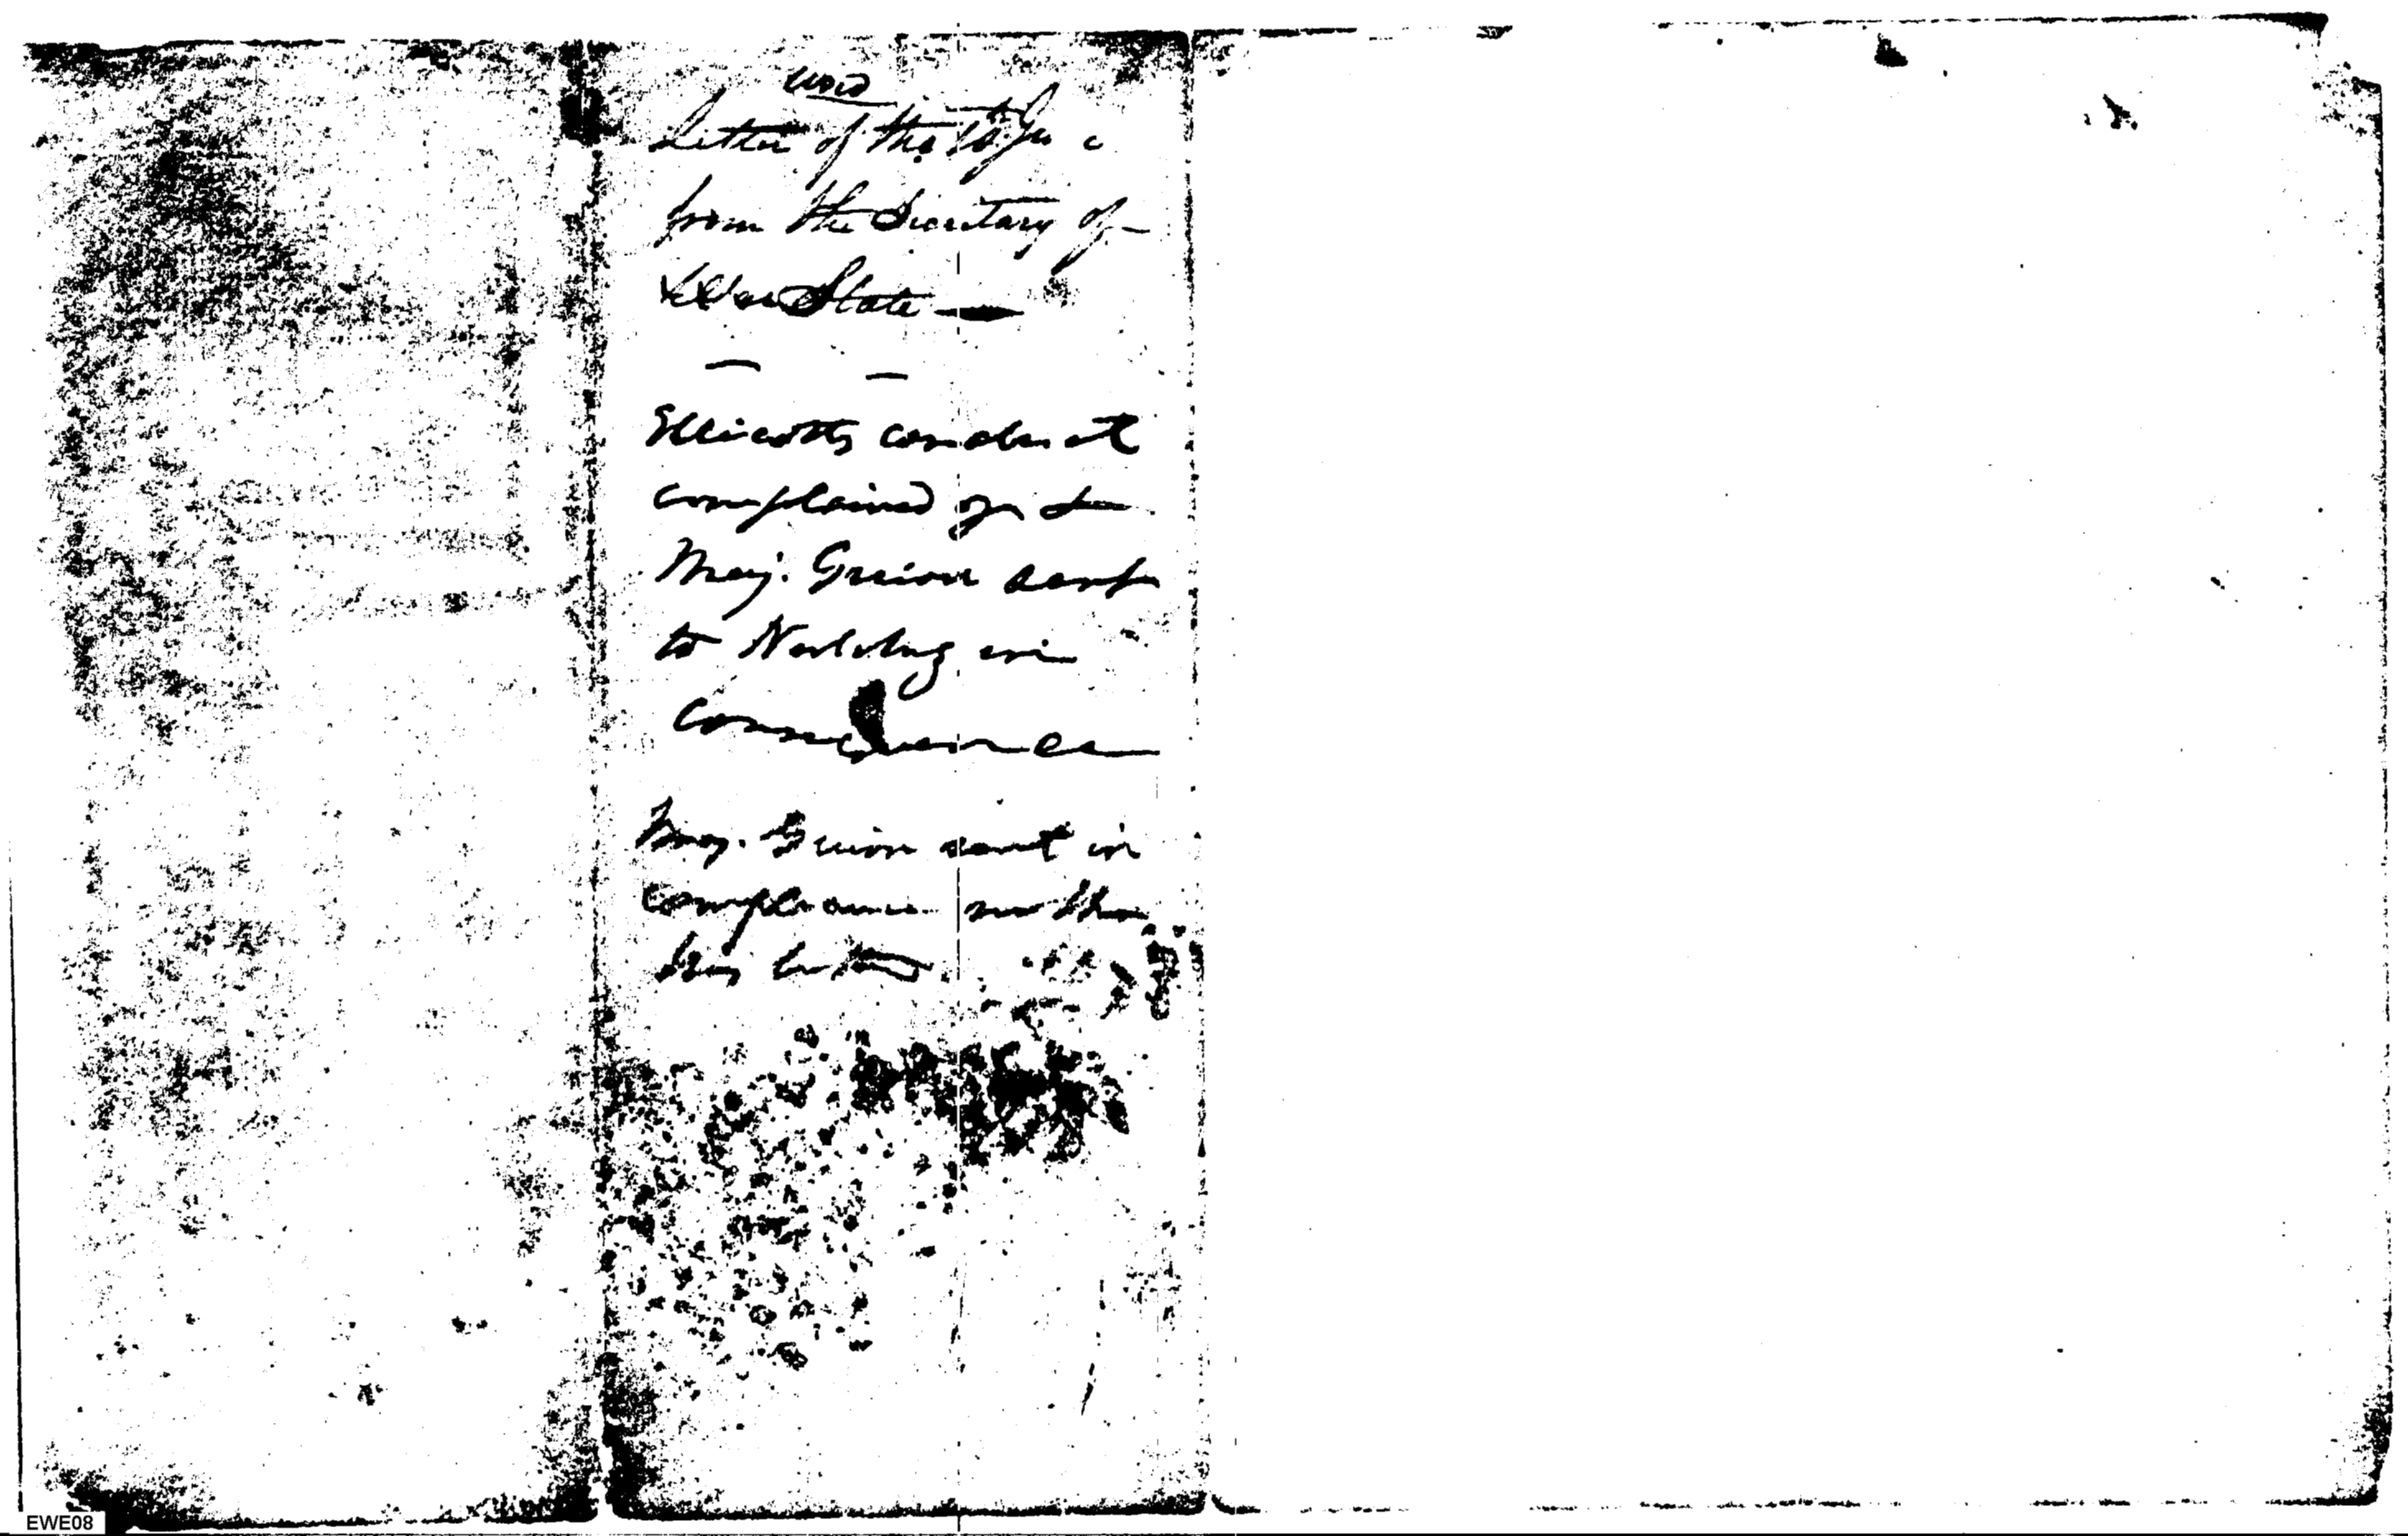 used
Letter of the 10th Ju
from the Secretary of
War State
Ellicotts conduct
complained of &
Maj. Guion sent
to Natchez in
consequence
Maj. Guion sent in
compliance with
this letter
EWE08